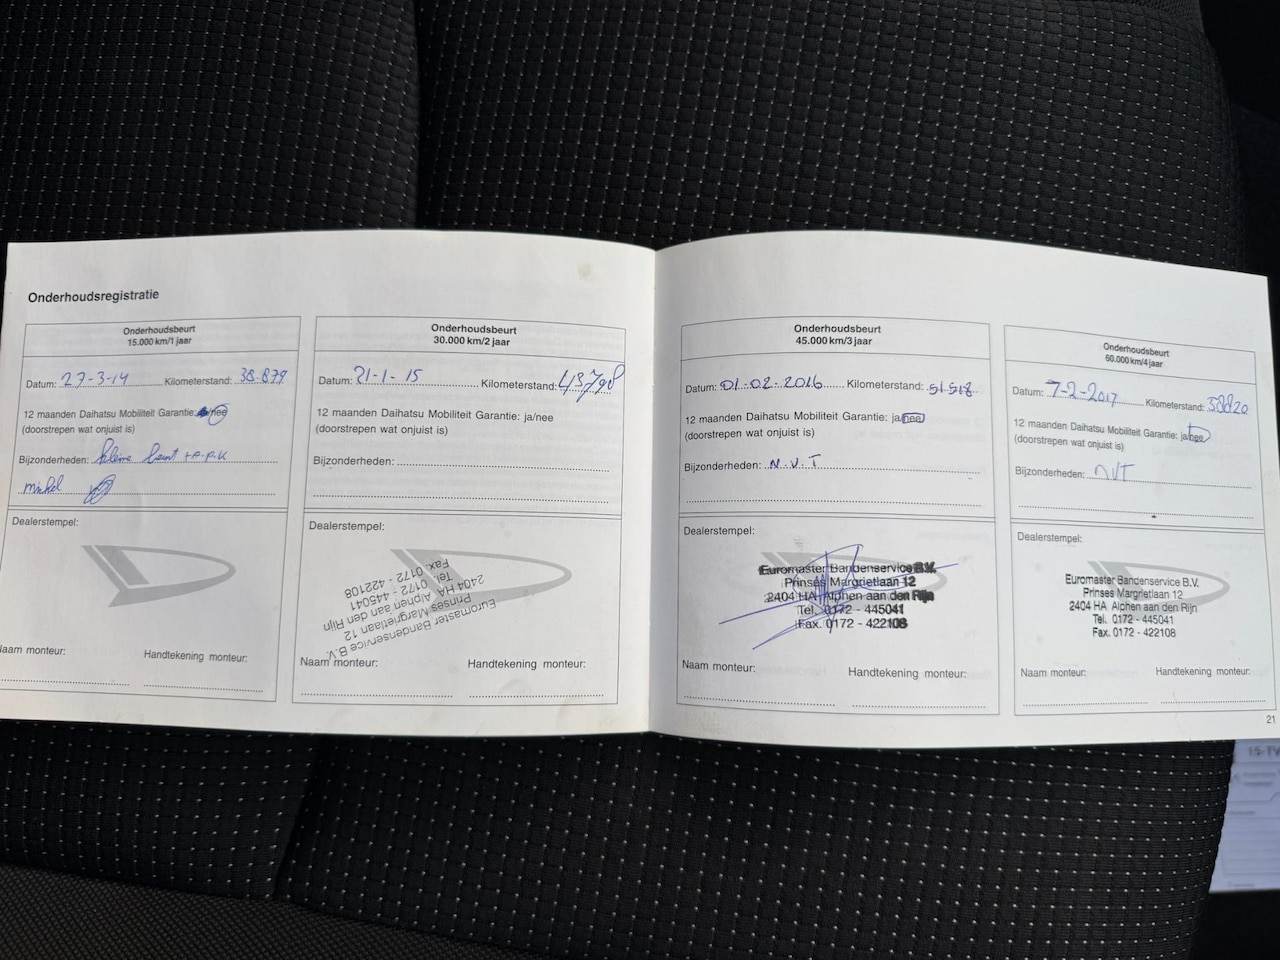 Onderhoudsregistratie
Onderhoudsbeurt
15.000 km/1 jaar
Datum: 27-3-14 Kilometerstand: 38.879
12 maanden Daihatsu Mobiliteit Garantie: nee
(doorstrepen wat onjuist is)
Bijzonderheden: kleine beurt + A.P.K
Dealerstempel:
Naam monteur: Handtekening monteur:
Onderhoudsbeurt
30.000 km/2 jaar
Datum: 21-1-15 Kilometerstand: 43798
12 maanden Daihatsu Mobiliteit Garantie: ja/nee
(doorstrepen wat onjuist is)
Bijzonderheden:
Dealerstempel:
Euromaster Bandenservice B.V.
Prinses Margrietlaan 12
2404 HA Alphen aan den Rijn
Tel. 0172 - 445041
Fax. 0172 - 422108
Naam monteur: Handtekening monteur:
Onderhoudsbeurt
45.000 km/3 jaar
Datum: 01-02-2016 Kilometerstand: 51518
12 maanden Daihatsu Mobiliteit Garantie: ja/nee
(doorstrepen wat onjuist is)
Bijzonderheden: N.V.T
Dealerstempel:
Euromaster Bandenservice B.V.
Prinses Margrietlaan 12
2404 HA Alphen aan den Rijn
Tel. 0172 - 445041
Fax. 0172 - 422108
Naam monteur: Handtekening monteur:
Onderhoudsbeurt
60.000 km/4 jaar
Datum: 7-2-2017 Kilometerstand: 58820
12 maanden Daihatsu Mobiliteit Garantie: ja/nee
(doorstrepen wat onjuist is)
Bijzonderheden: NVT
Dealerstempel:
Euromaster Bandenservice B.V.
Prinses Margrietlaan 12
2404 HA Alphen aan den Rijn
Tel. 0172 - 445041
Fax. 0172 - 422108
Naam monteur: Handtekening monteur:
21